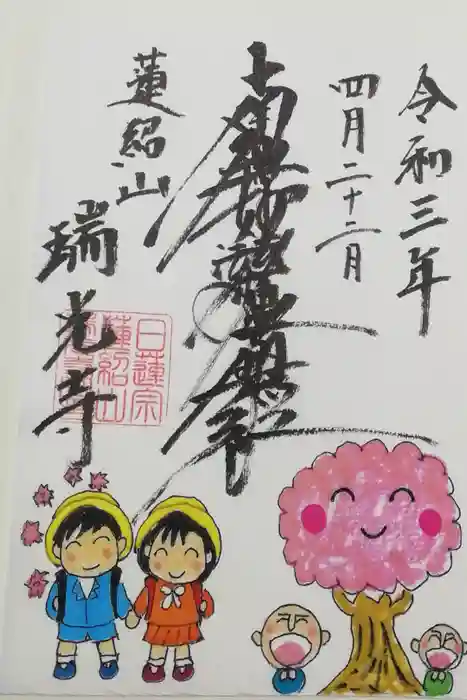 令和三年
四月二十二月
南無妙法蓮華経
蓮紹山
瑞光寺
日蓮宗
蓮紹山